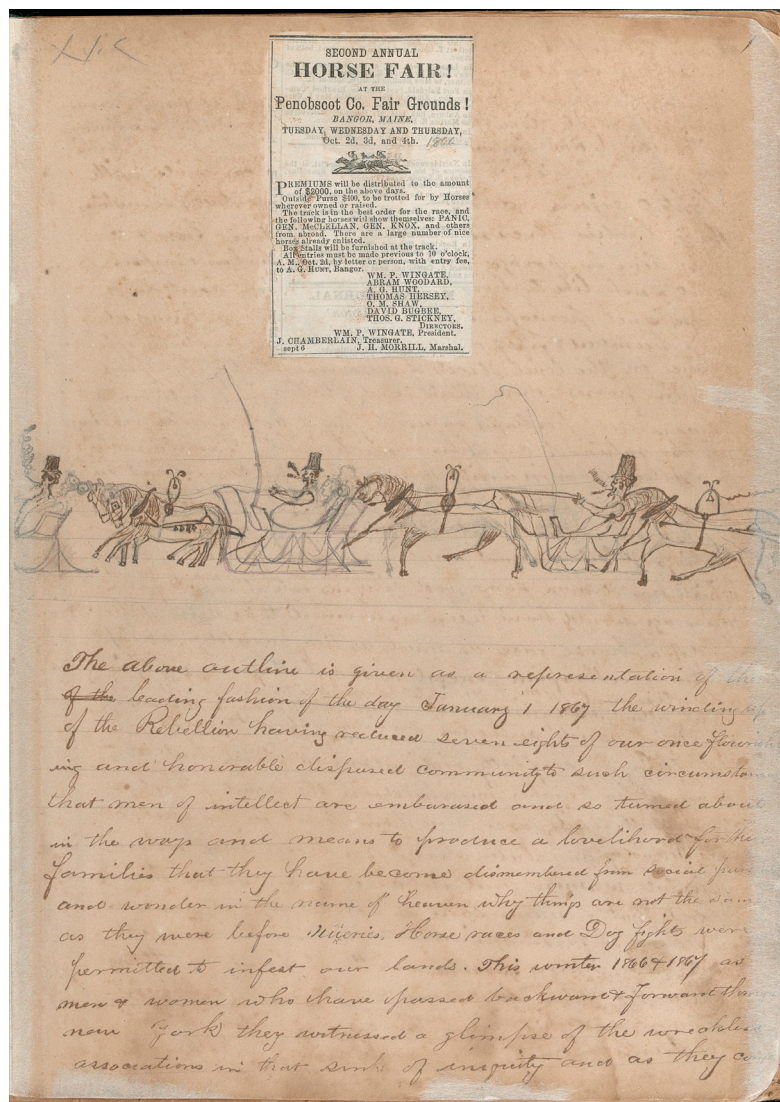 SECOND ANNUAL
HORSE FAIR!
AT THE
Penobscot Co. Fair Grounds!
BANGOR, MAINE.
TUESDAY, WEDNESDAY AND THURSDAY,
Oct. 2d, 3d, and 4th. 1866
PREMIUMS will be distributed to the amount
of $2000, on the above days.
Outside Purse $400, to be trotted for by Horses
wherever owned or raised.
The track is in the best order for the race, and
the following horses will show themselves: PANIC,
GEN. McCLELLAN, GEN. KNOX, and others
from abroad. There are a large number of nice
horses already enlisted.
Box Stalls will be furnished at the track.
All entries must be made previous to 10 o'clock,
A. M., Oct. 2d, by letter or person, with entry fee,
to A. G. HUNT, Bangor.
WM. P. WINGATE,
ABRAM WOODARD,
A. G. HUNT,
THOMAS HERSEY,
O. M. SHAW,
DAVID BUGBEE,
THOS. G. STICKNEY,
DIRECTORS.
WM. P. WINGATE, President.
J. CHAMBERLAIN, Treasurer.
sept 6 J. H. MORRILL, Marshal.
The above outline is given as a representation of the
of the leading fashion of the day January 1 1867 the winding up
of the Rebellion having reduced seven eights of our once flourish
ing and honorable disposed community to such circumstan
that men of intellect are embarased and so turned about
in the ways and means to produce a lovelihord for their
families that they have become dismembered from social
and wonder in the name of heaven why things are not the sam
as they were before Horse races and Dog fights were
permitted to infest our lands. This winter 1866 & 1867 as
men & women who have passed backward & forward
new York they witnessed a glimpse of the
associations in that sink of iniquity and as they